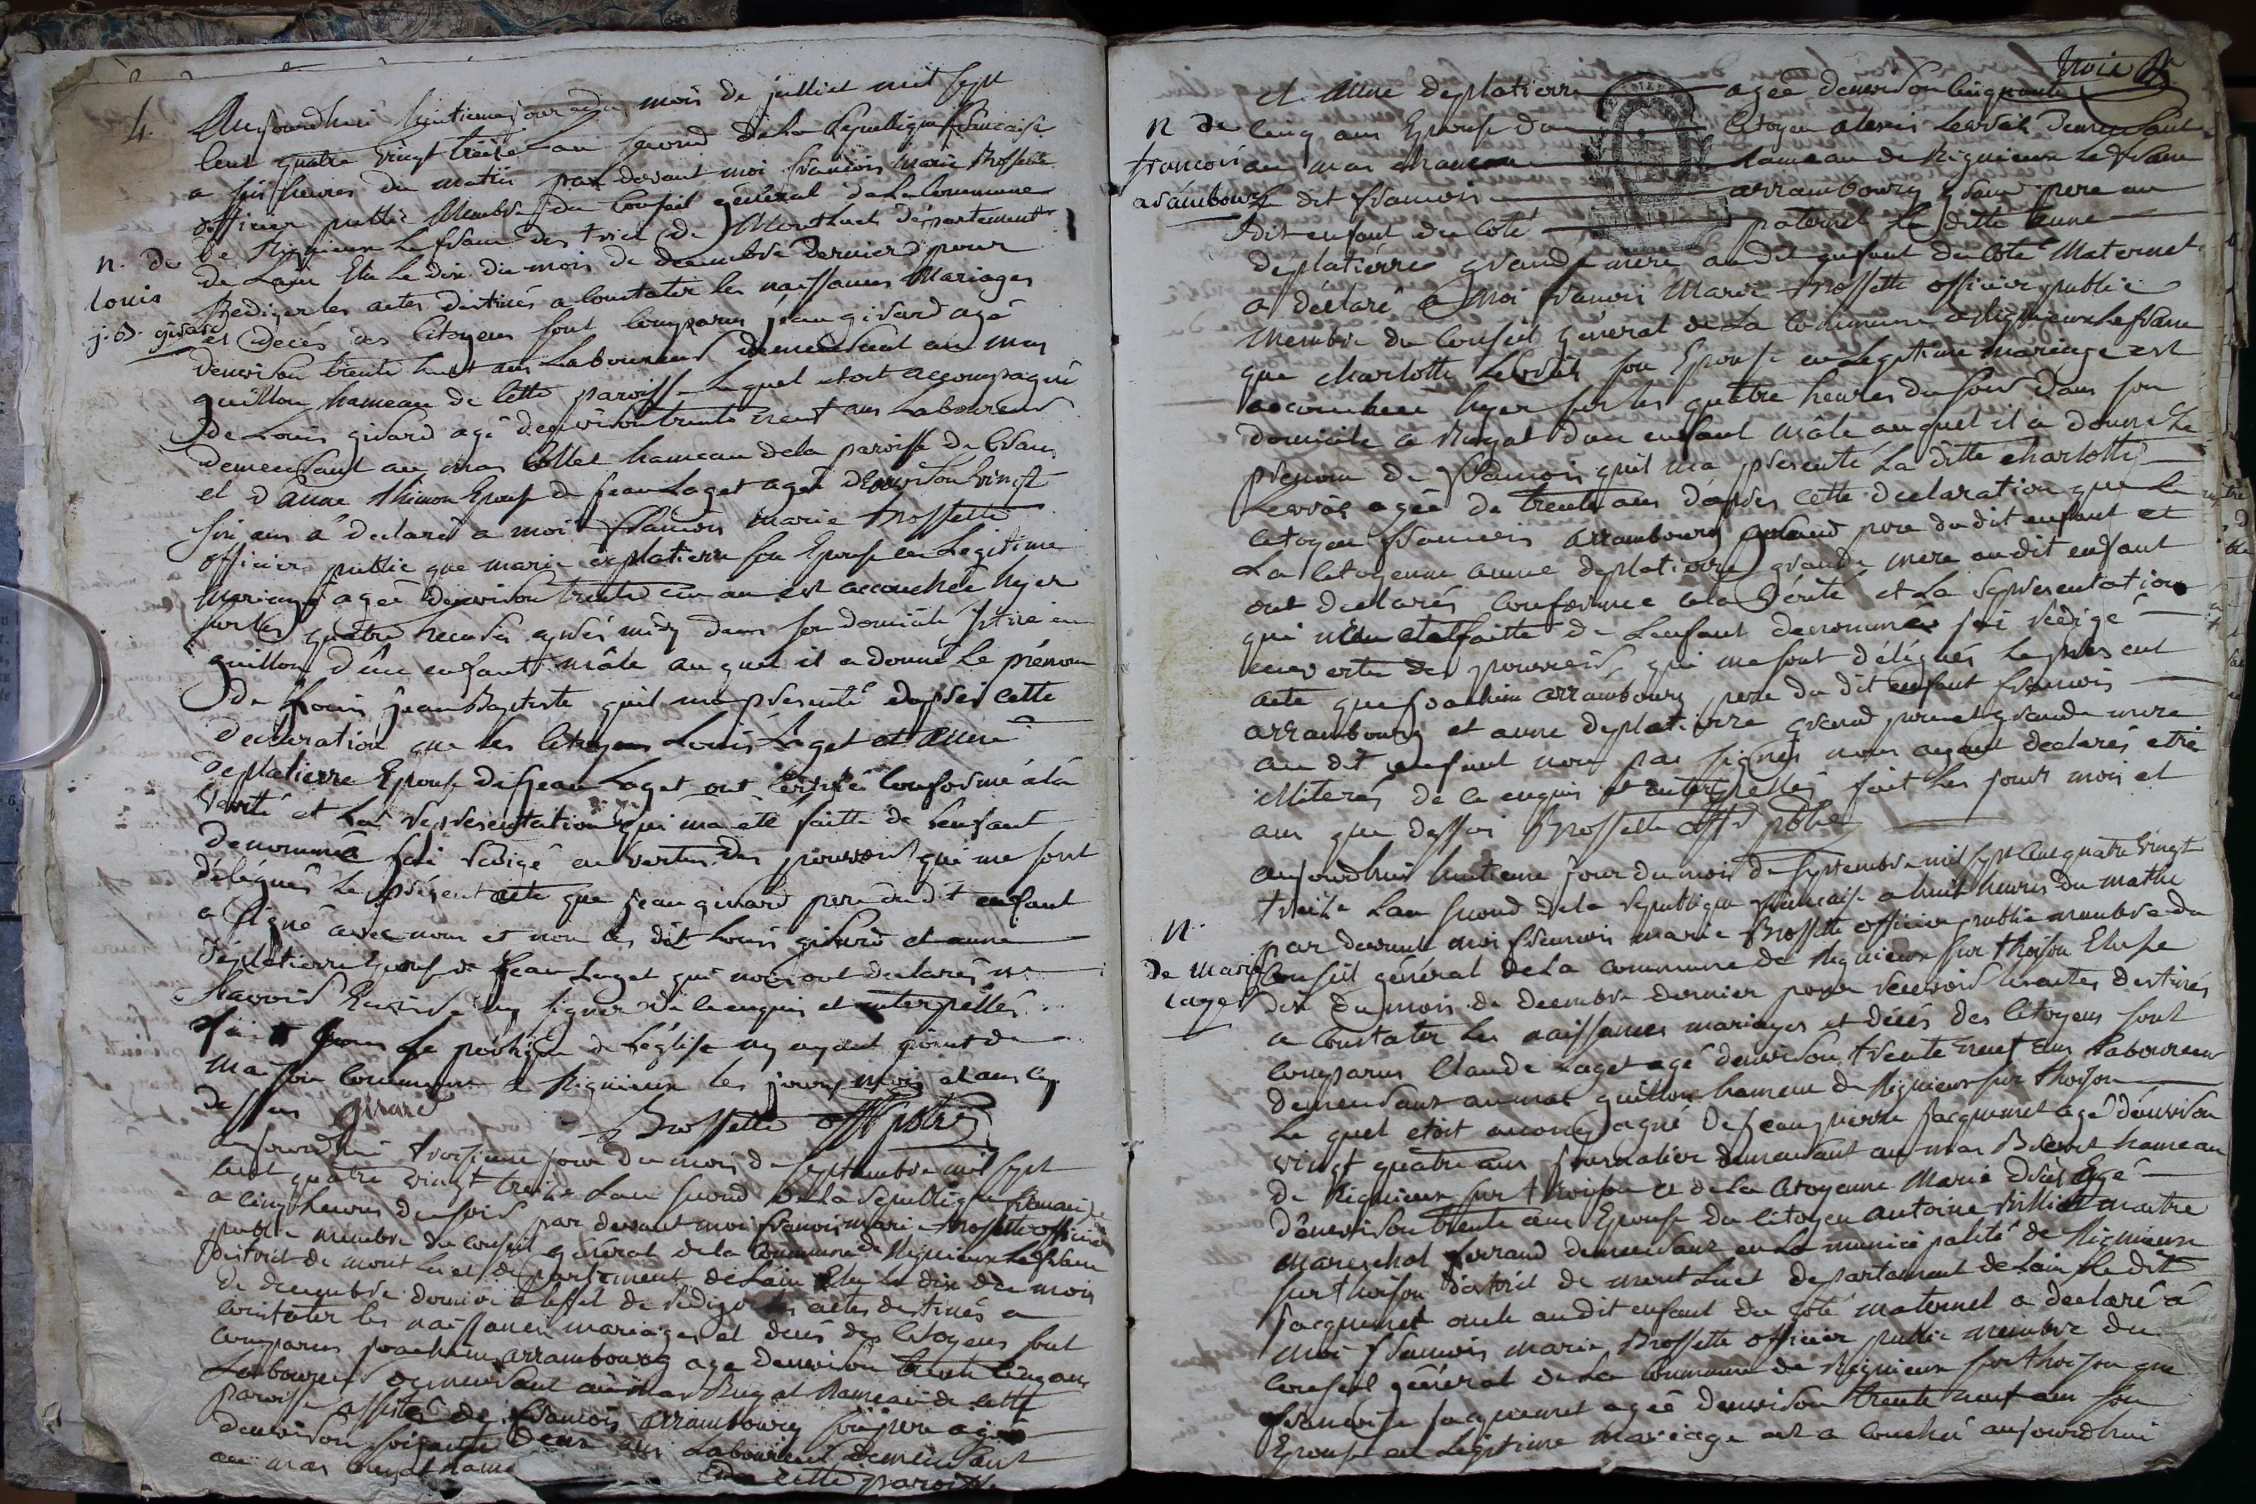 4.
Aujourdhui huitieme jour du mois de julliet mil sept
cent quatre vingt treize Lan second de la Republique francaise
a six heures du matin par devant moi francois marie Brossette
officier public Membre du Conseil général de La Commune
de Rignieux Le franc district de Montluel département
de Lain Elu le dix du mois de decembre dernier pour
Rediger les actes destinés a Constater les naissances Mariages
et décés des Citoyens sont comparus jean girard agé
denviron trente huit ans Laboureur demeurant au mas
guillon hameau de cette paroisse Lequel etoit accompagné
de Louis girard agé denviron trente neuf ans Laboureur
demeurant au mas Collet hameau de la paroisse de Crans
et danne thimon Epouse de jean Laget agée denviron vingt
six ans a déclaré a moi francois marie Brossette
officier public que marie deplatierre son Epouse en Legitime
mariage agée denviron trente un an est accouchée hyer
sur les quatre heures aprés midy dans son domicile sittué en
guillon d'un enfant mâle auquel il a donné Le prénom
de Louis jean Baptiste quil ma presenté daprés cette
declaration que les Citoyens Louis Laget et anne
deplatierre Epouse de jean Laget ont Certifié conforme á la
Verité et La representation qui ma été faitte de lenfant
denommé jai redigé en vertus des pouvoirs qui me sont
délégués le présent acte que jean girard pere du dit enfant
a signé avec nous et non les dit Louis girard et anne
déplatierre Epouse de jean Laget qui nous ont declarés ne
scavoir Ecrire ny signer de ce enquis et interpellés
fait sous Le portique de l'église ny ayant point de
maison commune a Rignieux les jours mois et ans cy
dessus girard
Brossette offr pblic
n. de
louis
j. B. girard
aujourdhui troisieme jour du mois de septembre mil sept
cent quatre vingt treize Lan second de La république francaise
a cinq heures du soir par devant moi francois marie Brossette officier
public membre du conseil général de la Commune de Rignieux Le franc
district de mont luel département de Lain Elu Le dix du mois
de decembre dernier a leffet de rediger les actes destinés a
Constater les naissances mariages et decés des Citoyens sont
comparus joachim arrambourg agé denviron trente cinq ans
Laboureur demeurant au mas Rugat hameau de cette
paroisse assisté de francois arrambourg son pere agé
denviron soixante deux ans Laboureur demeurant
au mas Rugat hame
de cette paroisse
trois
et anne deplatierre agée denviron cinquante
cinq ans Epouse du Citoyen alexis Lerrat demeurant
au mas hameau de Rignieux Le franc
Le dit francois arrambourg grand pere au
dit enfant du coté paternel La ditte anne
deplatierre grande mere audit enfant du coté Maternel
a déclaré a moi francois Marie Brossette officier public
membre du Conseil général de La Commune de Rignieux Le franc
que charlotte Lerrat son Epouse en Legitime mariage est
accouchée hyer sur les quatre heures du soir dans son
domicile a Rugat d'un enfant mâle auquel il a donné Le
prenom de francois quil ma presenté La ditte charlotte
Lerrat agée de trente ans daprés cette declaration que Le
Citoyen francois arrambourg grand pere du dit enfant et
La Citoyenne anne deplatierre grande mere audit enfant
ont declarés conforme ala Vérité et La representation
qui m'en etat faitte de Lenfant denommé jai redigé
en vertu des pouvoirs qui me sont délégués Le présent
acte que joachim arrambourg pere du dit enfant francois
arrambourg et anne deplatierre grand pere et grande mere
au dit enfant nont pas signés nous ayant declarés etre
illiterés de ce enquis et interpellés fait Les jours mois et
ans que dessus Brossette offr pblic
n de
francois
arambourg
aujourdhui huitieme jour du mois de septembre mil sept cent quatre vingt
treize Lan second de la république francaise a huit heures du matin
par devant moi francois marie Brossette officier public membre du
Conseil général de La commune de Rignieux sur thoison Elu le
dix du mois de decembre dernier pour recevoir les actes destinés
a Constater Les naissances mariages et décés des Citoyens sont
comparus Claude Laget agé denviron trente neuf ans Laboureur
demeurant au mas guillon hameau de Rignieux sur thoison
Le quel etoit accompagné de jean pierre jacquemet agé denviron
vingt quatre ans journalier demeurant au mas hameau
de Rignieux sur thoison et de La Citoyenne Marie agé
denviron trente ans Epouse du Citoyen antoine Billion maitre
mareschal ferrand demeurant en La municipalité de Rignieux
sur thoison district de mont Luel departement de Lain Le dit
jacquemet oncle audit enfant du coté maternel a declaré á
moi francois marie Brossette officier public membre du
Conseil général de La Commune de Rignieux sur thoison que
francoise jacquemet agée denviron trente neuf ans son
Epouse en Legitime mariage est a couchée aujourdhui
n.
de marie
laget